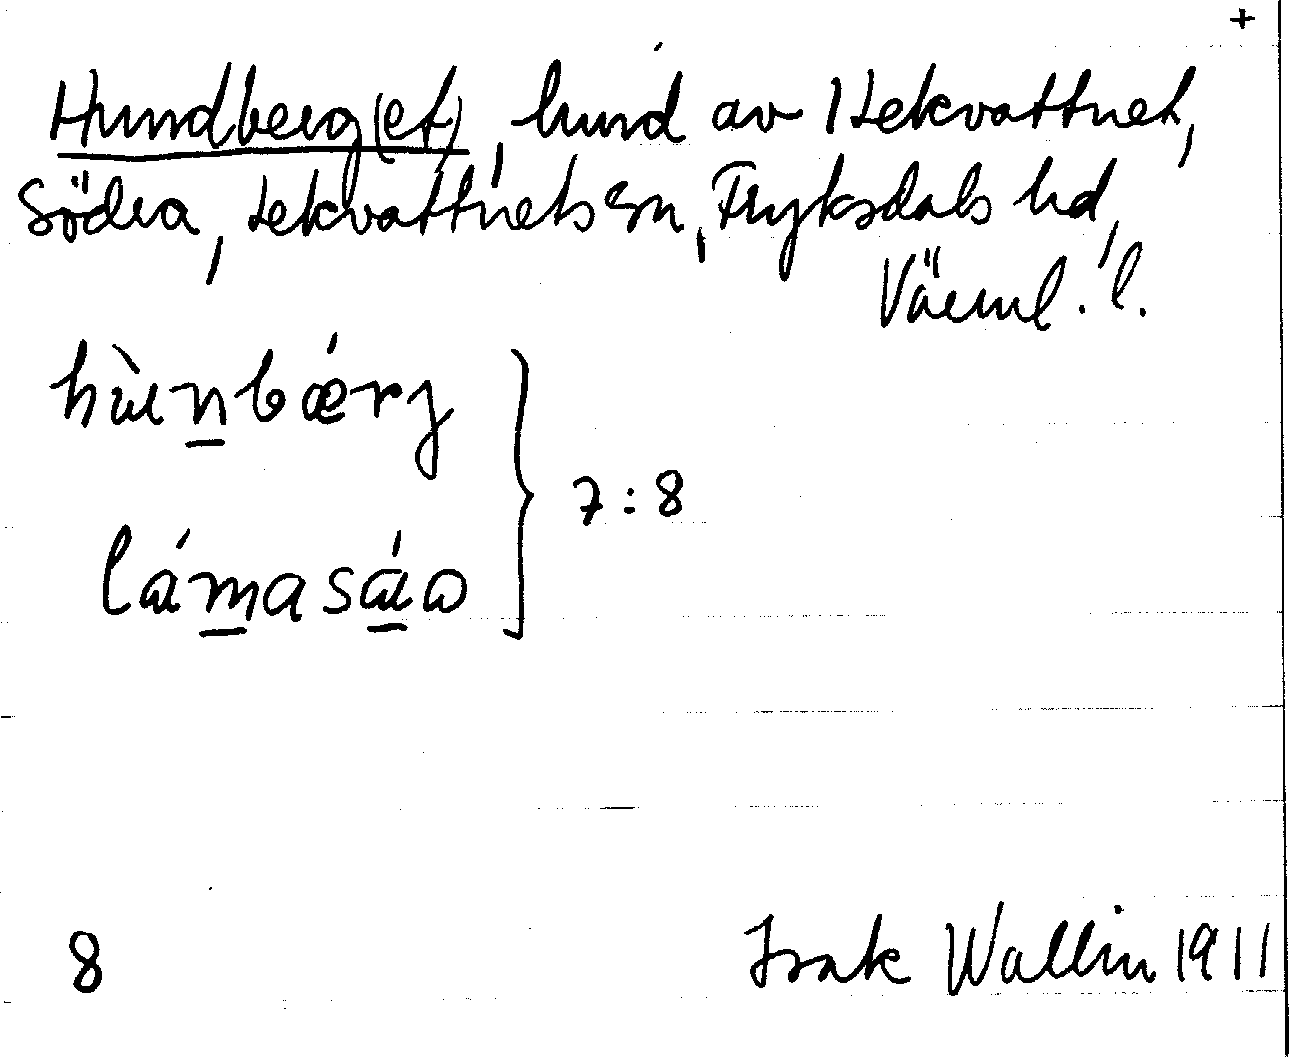 +
Hundberg(et), hmd av 1 Lekvattnet,
Södra, Lekvattnets sn, Fryksdals hd,
Värml. l.
hùnbǽrj
lámasáo
7:8
8
Isak Wallin 1911